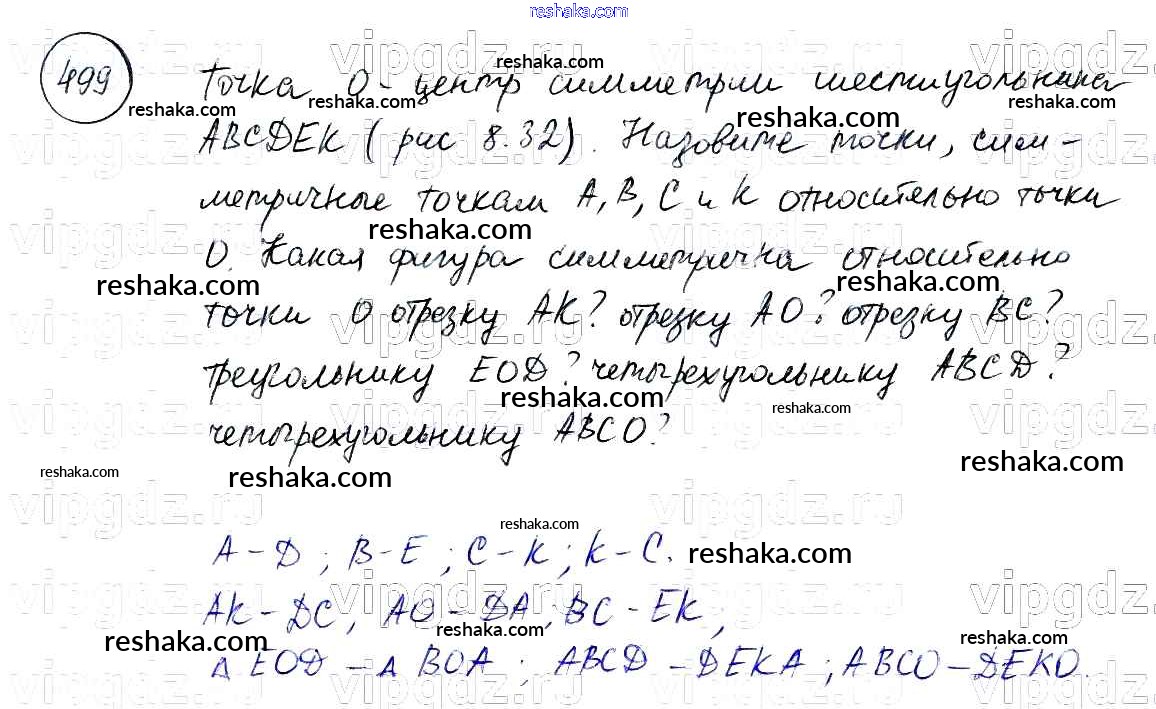 reshaka.com
499 Точка О - центр симметрии шестиугольника
ABCDEK (рис 8.32). Назовите точки, сим-
метричные точкам A, B, C и K относительно точки
О. Какая фигура симметрична относительно
точки О отрезку AK? отрезку AO? отрезку BC?
треугольнику EOD? четырехугольнику ABCD?
четырехугольнику ABCO?
A-D; B-E; C-K; K-C.
AK-DC; AO-DA; BC-EK;
Δ EOD - Δ BOA; ABCD-DEKA; ABCO-DEKO.